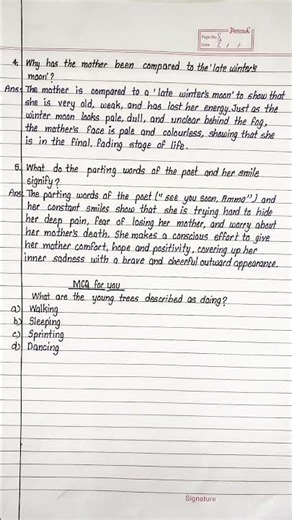 Page No.
Date
4. Why has the mother been compared to the 'late winter's
moon'?
Ans: The mother is compared to a 'late winter's moon' to show that
she is very old, weak, and has lost her energy. Just as the
winter moon looks pale, dull, and unclear behind the fog,
the mother's face is pale and colourless, showing that she
is in the final, fading stage of life.
5. What do the parting words of the poet and her smile
signify?
Ans: The parting words of the poet ("see you soon, Amma") and
her constant smiles show that she is trying hard to hide
her deep pain, fear of losing her mother, and worry about
her mother's death. She makes a conscious effort to give
her mother comfort, hope and positivity, covering up her
inner sadness with a brave and cheerful outward appearance.
MCQ for you
What are the young trees described as doing?
a) Walking
b) Sleeping
c) Sprinting
d) Dancing
Signature